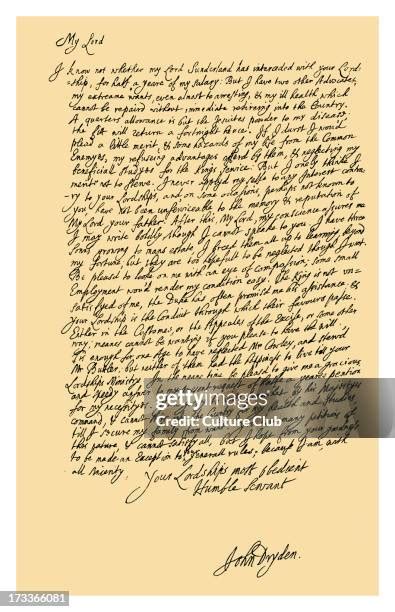 My Lord
I know not whether my Lord Sunderland has interceded with your Lord-
ship, for half a yeare of my salary: But I have two other Advocates,
my extreame wants, even almost to arresting, & my ill health, which
cannot be repaird without immediate retireing into the Country.
A quarters allowance is but the Jesuites powder to my disease;
the fitt will return a fortnight hence. If I durst I would
plead a little merit, & some hazards of my life from the Common
Enemyes, my refuseing advantages offerd by them, & neglecting my
beneficiall studyes for the King's service: But I onely thinke I
merit not to sterve. I never applyd my selfe to any Interest contra-
ry to your Lordships, and on some occasions, perhaps not known to
you, have not been unserviceable to the memory & reputation of
My Lord your father. After this, My Lord, my conscience assures me
I may write boldly, though I cannot speake to you. I have three
Sonns growing to mans estate, I breed them all up to learning, beyond
my fortune; but they are too hopefull to be neglected though I want.
Be pleasd to looke on me with an eye of compassion; some small
Employment wou'd render my condition easy. The King is not un-
satisfyed of me, the Duke has often promisd me his assistance; &
Your Lordship is the Conduit through which their favours passe.
Either in the Customes, or the Appeales of the Excise, or some other
way; meanes cannot be wanting if you please to have the will.
Tis enough for one Age to have neglected Mr Cowley, and sterv'd
Mr Butler; but neither of them had the happiness to live till your
Lordships Ministry. In the meane time be pleasd to give me a gracious
and
for my
command, & cannot
till I secure my family from want
this nature, & cannot satisfy all, but I hope from your goodness
to be made an Exception to generall rules; because I am, with
all sincerity,
Your Lordships most obedient
Humble Servant
John Dryden.
gettyimages
Culture Club
173366081